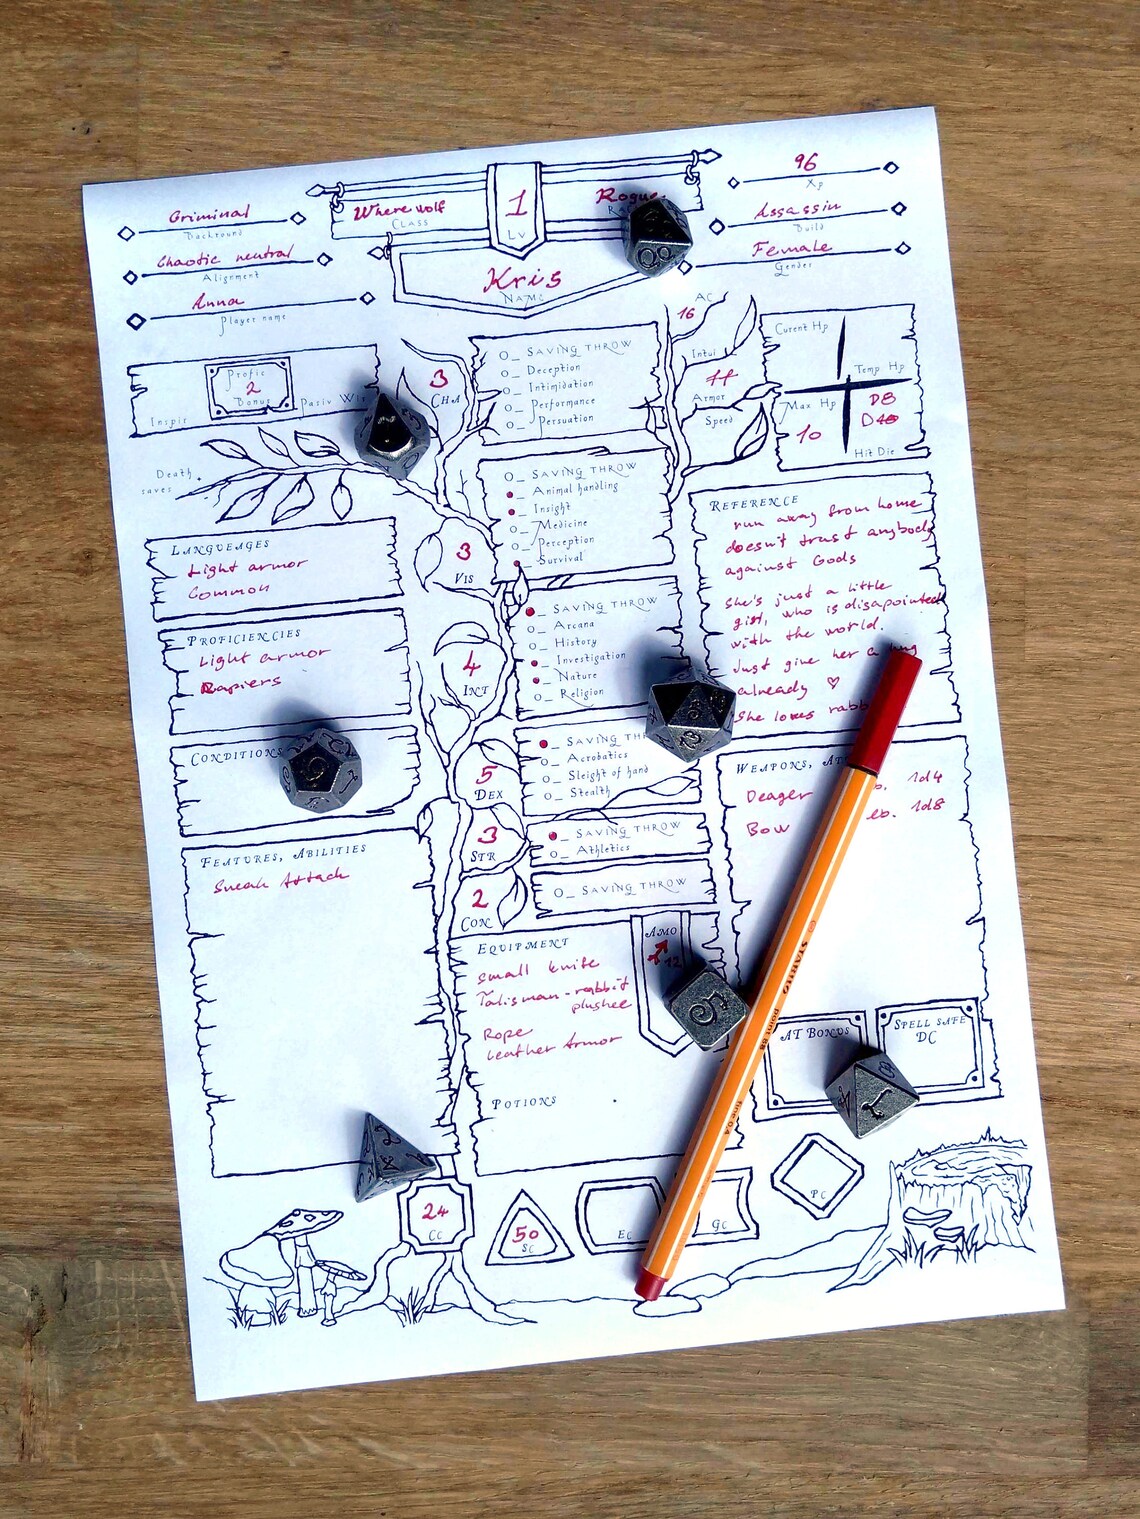 Criminal
Backround
Chaotic neutral
Alignment
Anna
Player name
Where wolf
Class
1
Lv
Rogue
Kris
Name
96
Xp
Assassin
Build
Female
Gender
Profic
2
Bonus
Inspir
Pasiv Wis
Death
saves
3
Cha
O_ Saving throw
O_ Deception
O_ Intimidation
O_ Performance
O_ Persuation
AC
16
Intui
Armor
Speed
Curent Hp
Temp Hp
Max Hp
10
D8
Hit Die
Languages
Light armor
Common
3
Vis
O_ Saving throw
_ Animal handling
_ Insight
O_ Medicine
O_ Perception
_ Survival
Reference
run away from home
doesn't trust anybody
against Gods
She's just a little
girl, who is disapointed
with the world.
Just give her a hug
already ♡
She loves
Proficiencies
Light armor
Rapiers
4
Int
_ Saving throw
O_ Arcana
O_ History
_ Investigation
_ Nature
O_ Religion
Conditions
5
Dex
_ Saving
O_ Acrobatics
O_ Sleight of hand
O_ Stealth
Weapons,
Deager 1d4
Bow 1d8
3
Str
_ Saving throw
O_ Athletics
2
Con
O_ Saving throw
Features, Abilities
Sneak Attack
Equipment
small knife
Talisman - rabbit
plushee
Rope
Leather Armor
Amo
12
Potions
AT Bonus
Spell safe
DC
24
Cc
50
Sc
Ec
Gc
Pc
STABILO
point 88
fine 0.4